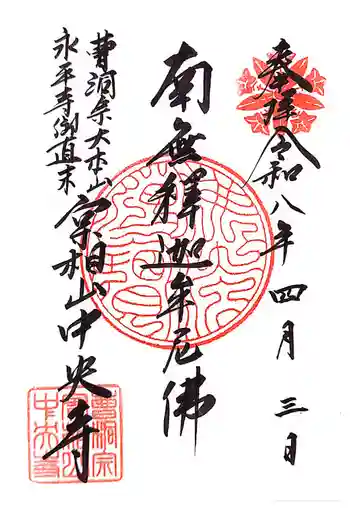 奉拝
令和八年四月三日
南無釋迦牟尼佛
曹洞宗大本山
永平寺御直末
宗相山中央寺